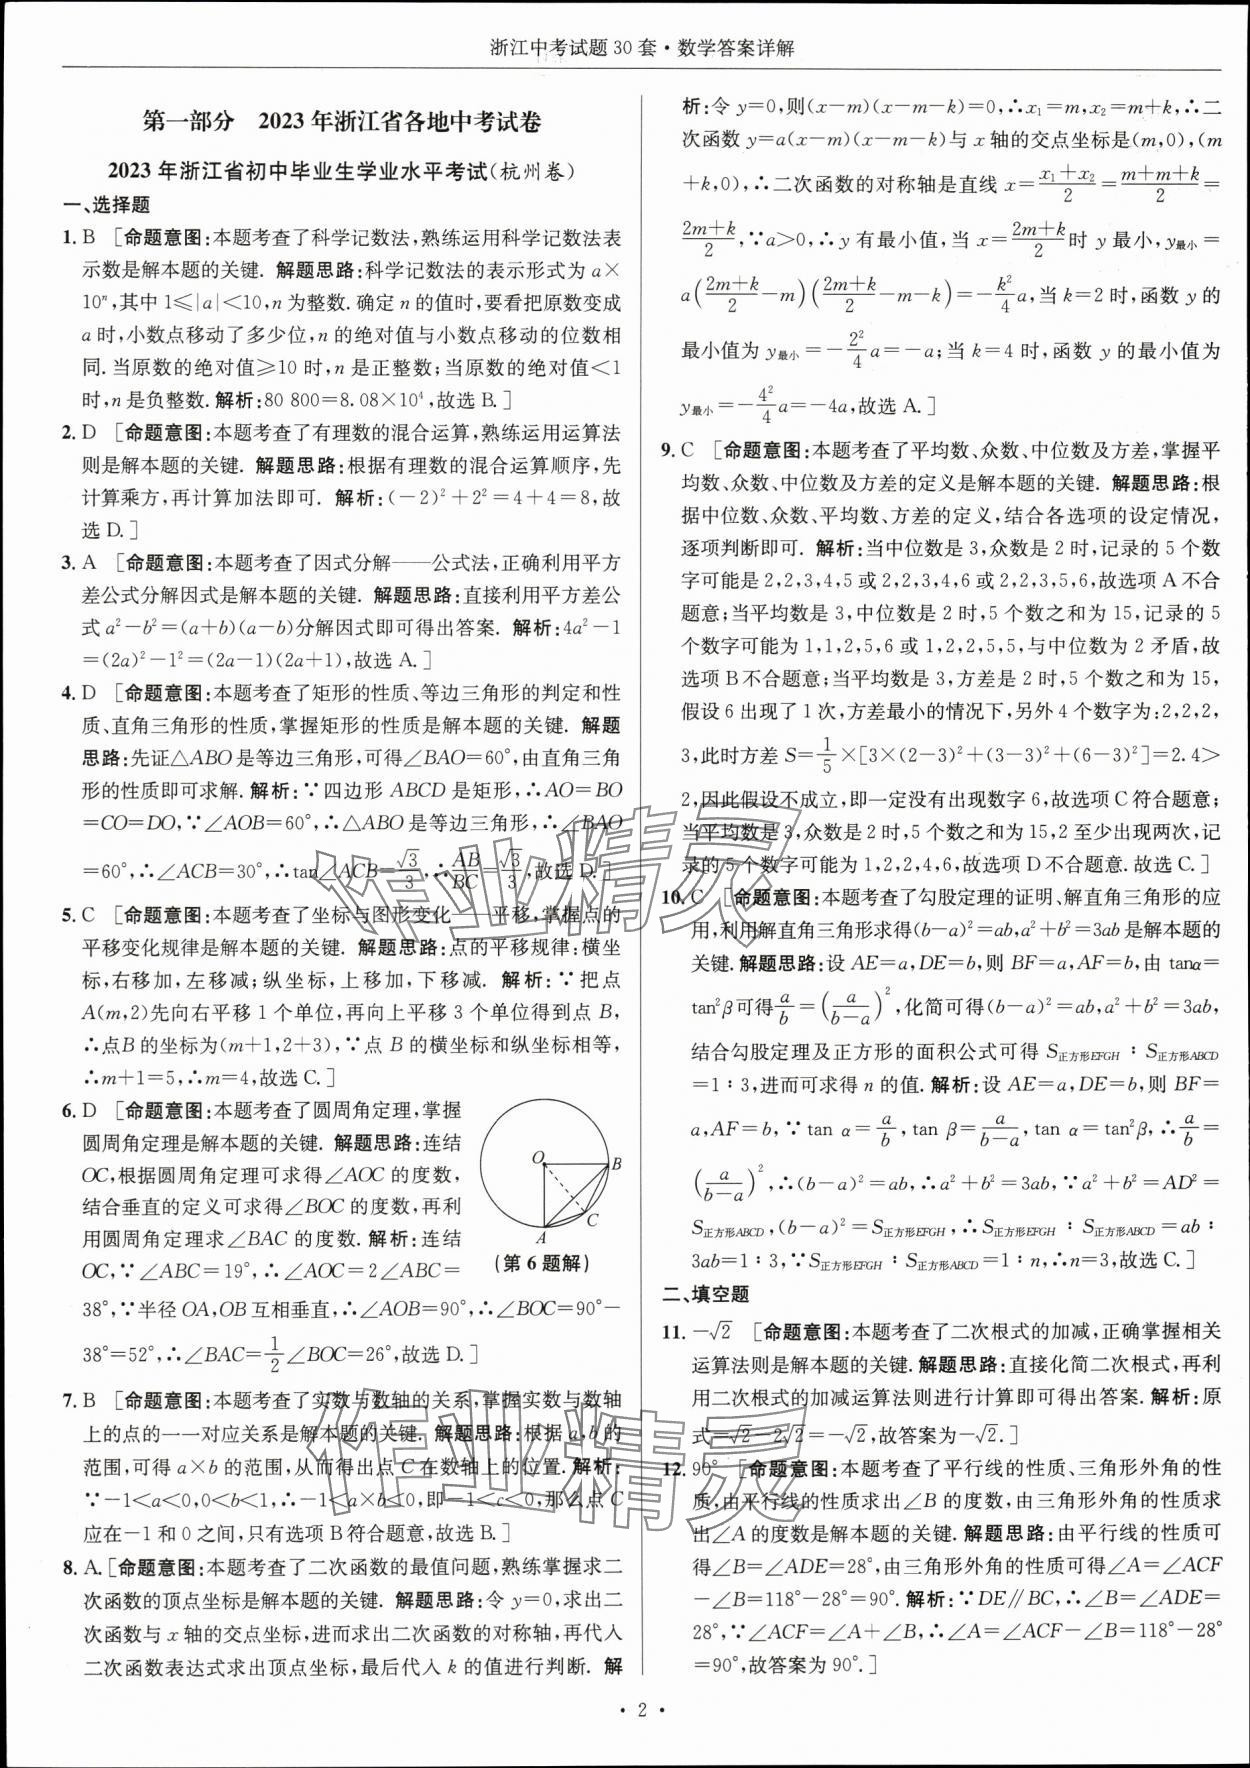 浙江中考试题30套·数学答案详解
第一部分 2023年浙江省各地中考试卷
2023年浙江省初中毕业生学业水平考试(杭州卷)
一、选择题
1. B [命题意图:本题考查了科学记数法,熟练运用科学记数法表
示数是解本题的关键. 解题思路:科学记数法的表示形式为a×
10ⁿ,其中1≤|a|<10,n为整数.确定n的值时,要看把原数变成
a时,小数点移动了多少位,n的绝对值与小数点移动的位数相
同.当原数的绝对值≥10时,n是正整数;当原数的绝对值<1
时,n是负整数.解析:80 800=8.08×10⁴,故选B.]
2. D [命题意图:本题考查了有理数的混合运算,熟练运用运算法
则是解本题的关键. 解题思路:根据有理数的混合运算顺序,先
计算乘方,再计算加法即可. 解析:(-2)²+2²=4+4=8,故
选D.]
3. A [命题意图:本题考查了因式分解——公式法,正确利用平方
差公式分解因式是解本题的关键. 解题思路:直接利用平方差公
式a²-b²=(a+b)(a-b)分解因式即可得出答案. 解析:4a²-1
=(2a)²-1²=(2a-1)(2a+1),故选A.]
4. D [命题意图:本题考查了矩形的性质、等边三角形的判定和性
质、直角三角形的性质,掌握矩形的性质是解本题的关键. 解题
思路:先证△ABO是等边三角形,可得∠BAO=60°,由直角三角
形的性质即可求解.解析:∵四边形ABCD是矩形,∴AO=BO
=CO=DO,∵∠AOB=60°,∴△ABO是等边三角形,∴∠BAO
=60°,∴∠ACB=30°,∴tan∠ACB=√3/3,∴AB/BC=√3/3,故选D.]
5. C [命题意图:本题考查了坐标与图形变化——平移,掌握点的
平移变化规律是解本题的关键. 解题思路:点的平移规律:横坐
标,右移加,左移减;纵坐标,上移加,下移减. 解析:∵把点
A(m,2)先向右平移1个单位,再向上平移3个单位得到点B,
∴点B的坐标为(m+1,2+3),∵点B的横坐标和纵坐标相等,
∴m+1=5,∴m=4,故选C.]
6. D [命题意图:本题考查了圆周角定理,掌握
圆周角定理是解本题的关键. 解题思路:连结
OC,根据圆周角定理可求得∠AOC的度数,
结合垂直的定义可求得∠BOC的度数,再利
用圆周角定理求∠BAC的度数.解析:连结
OC,∵∠ABC=19°,∴∠AOC=2∠ABC=
38°,∵半径OA,OB互相垂直,∴∠AOB=90°,∴∠BOC=90°-
38°=52°,∴∠BAC=1/2∠BOC=26°,故选D.]
O
B
C
A
(第6题解)
7. B [命题意图:本题考查了实数与数轴的关系,掌握实数与数轴
上的点的一一对应关系是解本题的关键.解题思路:根据a,b的
范围,可得a×b的范围,从而得出点C在数轴上的位置.解析:
∵-1<a<0,0<b<1,∴-1<a×b<0,即-1<c<0,那么点C
应在-1和0之间,只有选项B符合题意,故选B.]
8. A.[命题意图:本题考查了二次函数的最值问题,熟练掌握求二
次函数的顶点坐标是解本题的关键. 解题思路:令y=0,求出二
次函数与x轴的交点坐标,进而求出二次函数的对称轴,再代入
二次函数表达式求出顶点坐标,最后代入k的值进行判断. 解
析:令y=0,则(x-m)(x-m-k)=0,∴x₁=m,x₂=m+k,∴二
次函数y=a(x-m)(x-m-k)与x轴的交点坐标是(m,0),(m
+k,0),∴二次函数的对称轴是直线x=(x₁+x₂)/2=(m+m+k)/2=
(2m+k)/2,∵a>0,∴y有最小值,当x=(2m+k)/2时y最小,y最小=
a((2m+k)/2-m)((2m+k)/2-m-k)=-k²/4a,当k=2时,函数y的
最小值为y最小=-2²/4a=-a;当k=4时,函数y的最小值为
y最小=-4²/4a=-4a,故选A.]
9. C [命题意图:本题考查了平均数、众数、中位数及方差,掌握平
均数、众数、中位数及方差的定义是解本题的关键. 解题思路:根
据中位数、众数、平均数、方差的定义,结合各选项的设定情况,
逐项判断即可. 解析:当中位数是3,众数是2时,记录的5个数
字可能是2,2,3,4,5或2,2,3,4,6或2,2,3,5,6,故选项A不合
题意;当平均数是3,中位数是2时,5个数之和为15,记录的5
个数字可能为1,1,2,5,6或1,2,2,5,5,与中位数为2矛盾,故
选项B不合题意;当平均数是3,方差是2时,5个数之和为15,
假设6出现了1次,方差最小的情况下,另外4个数字为:2,2,2,
3,此时方差S=1/5×[3×(2-3)²+(3-3)²+(6-3)²]=2.4>
2,因此假设不成立,即一定没有出现数字6,故选项C符合题意;
当平均数是3,众数是2时,5个数之和为15,2至少出现两次,记
录的5个数字可能为1,2,2,4,6,故选项D不合题意.故选C.]
10. C [命题意图:本题考查了勾股定理的证明、解直角三角形的应
用,利用解直角三角形求得(b-a)²=ab,a²+b²=3ab是解本题的
关键.解题思路:设AE=a,DE=b,则BF=a,AF=b,由tanα=
tan²β可得a/b=(a/(b-a))²,化简可得(b-a)²=ab,a²+b²=3ab,
结合勾股定理及正方形的面积公式可得S正方形EFGH∶S正方形ABCD
=1∶3,进而可求得n的值.解析:设AE=a,DE=b,则BF=
a,AF=b,∵tan α=a/b,tan β=a/(b-a),tan α=tan²β,∴a/b=
(a/(b-a))²,∴(b-a)²=ab,∴a²+b²=3ab,∵a²+b²=AD²=
S正方形ABCD,(b-a)²=S正方形EFGH,∴S正方形EFGH∶S正方形ABCD=ab∶
3ab=1∶3,∵S正方形EFGH∶S正方形ABCD=1∶n,∴n=3,故选C.]
二、填空题
11. -√2 [命题意图:本题考查了二次根式的加减,正确掌握相关
运算法则是解本题的关键.解题思路:直接化简二次根式,再利
用二次根式的加减运算法则进行计算即可得出答案.解析:原
式=√2-2√2=-√2,故答案为-√2.]
12. 90° [命题意图:本题考查了平行线的性质、三角形外角的性
质,由平行线的性质求出∠B的度数,由三角形外角的性质求
出∠A的度数是解本题的关键. 解题思路:由平行线的性质可
得∠B=∠ADE=28°,由三角形外角的性质可得∠A=∠ACF
-∠B=118°-28°=90°.解析:∵DE∥BC,∴∠B=∠ADE=
28°,∵∠ACF=∠A+∠B,∴∠A=∠ACF-∠B=118°-28°
=90°,故答案为90°.]
·2·
作业精灵
作业精灵